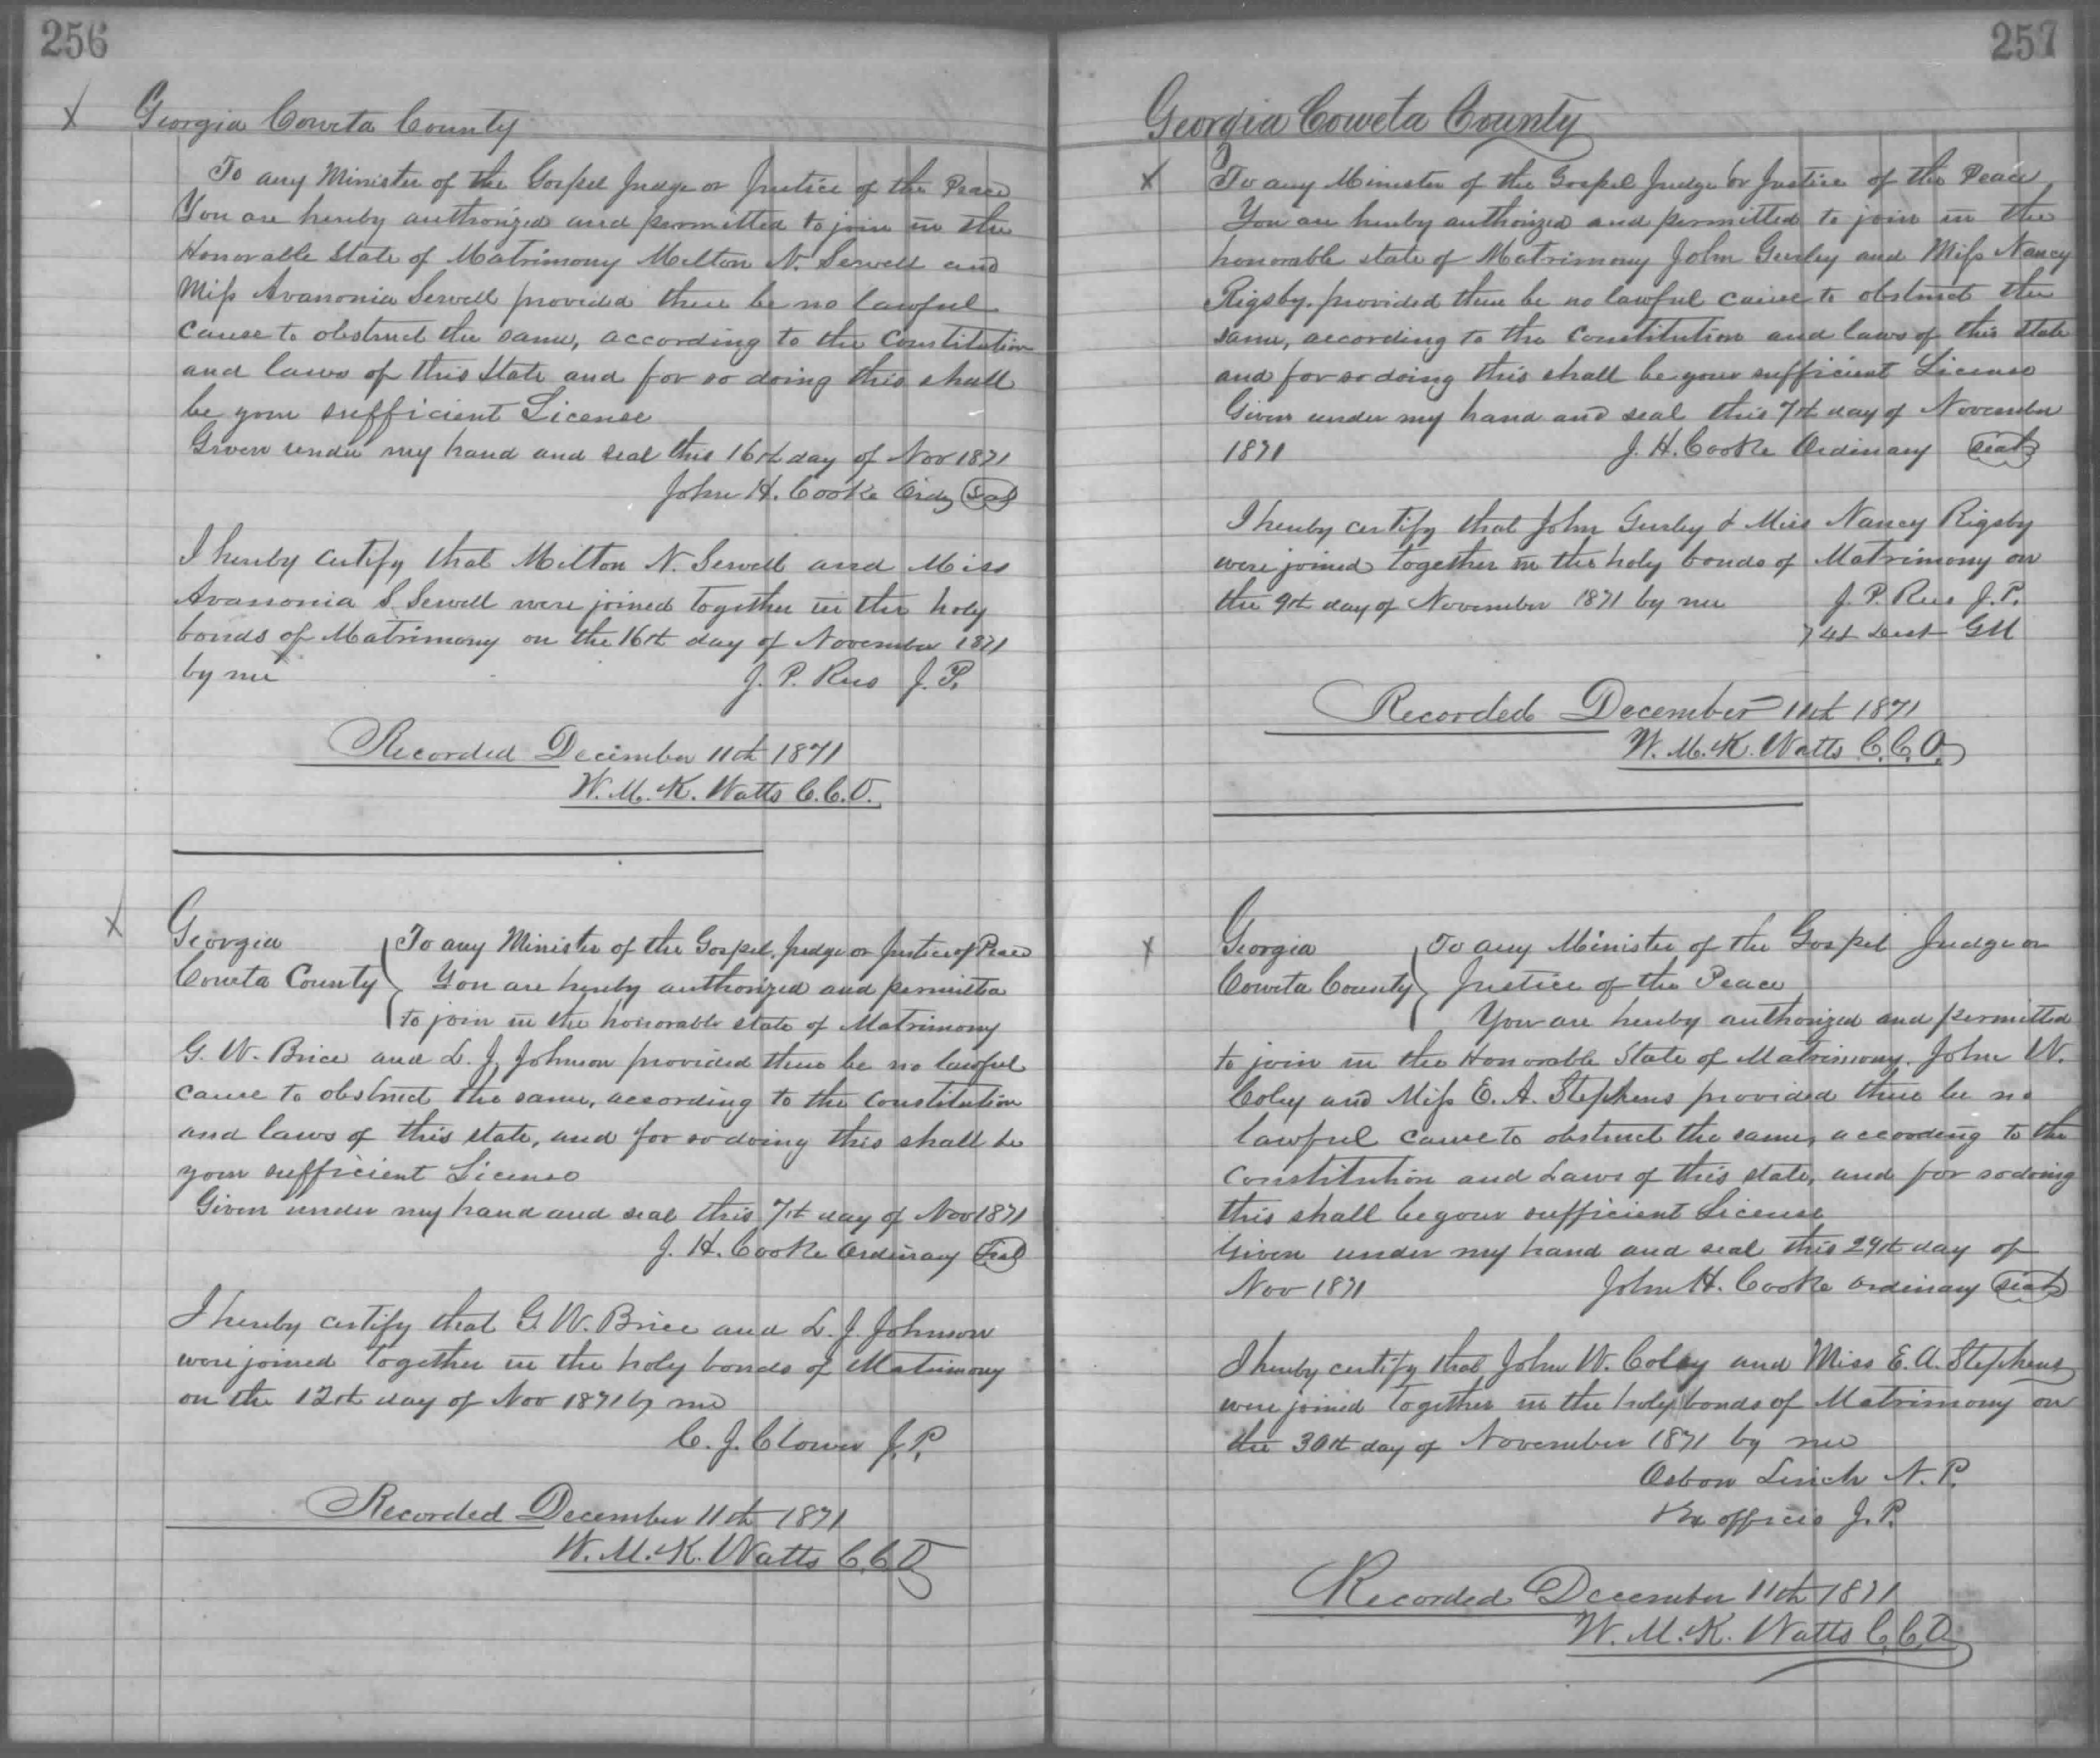 256
Georgia Coweta County
To any Minister of the Gospel Judge or Justice of the Peace
You are hereby authorized and permitted to join in the
Honorable state of Matrimony Milton N. Sewell and
Miss Avanonia Sewell provided there be no lawful
cause to obstruct the same, according to the Constitution
and laws of this State and for so doing this shall
be your sufficient License
Given under my hand and seal this 16th day of Nov 1871
John H. Cooke Ordy Seal
I hereby certify that Milton N. Sewell and Miss
S. Sewell were joined together in the holy
bonds of Matrimony on the 16th day of November 1871
by me J. P. Rees J. P.
Recorded December 11th 1871
W. M. K. Watts C. C. O.
Georgia
Coweta County
To any Minister of the Gospel, Judge or Justice of Peace
You are hereby authorized and permitted
to join in the honorable state of Matrimony
G. W. Brice and L. J. Johnson provided there be no lawful
cause to obstruct the same, according to the constitution
and laws of this state, and for so doing this shall be
your sufficient License
Given under my hand and seal this 7th day of Nov 1871
J. H. Cooke Ordinary Seal
I hereby certify that G. W. Brice and L. J. Johnson
were joined together in the holy bonds of Matrimony
on the 12th day of Nov 1871 by me
C. J. Clower J. P.
Recorded December 11th 1871
W. M. K. Watts C. C. O
257
Georgia Coweta County
To any Minister of the Gospel Judge or Justice of the Peace
You are hereby authorized and permitted to join in the
honorable state of Matrimony John Gurley and Miss Nancy
Rigsby. provided there be no lawful cause to obstruct the
same, according to the constitution and laws of this state
and for so doing this shall be your sufficient License
Given under my hand and seal this 7th day of November
1871 J. H. Cooke Ordinary Seal
I hereby certify that John Gurley & Miss Nancy Rigsby
were joined together in the holy bonds of Matrimony on
the 9th day of November 1871 by me J. P. Rees J. P.
741 Dist GM
Recorded December 11th 1871
W. M. K. Watts C. C. O.
Georgia
Coweta County
To any Minister of the Gospel Judge or
Justice of the Peace
You are hereby authorized and permitted
to join in the Honorable State of Matrimony. John W.
Coley and Miss E. A. Stephens provided there be no
lawful cause to obstruct the same, according to the
constitution and Laws of this state, and for so doing
this shall be your sufficient License
Given under my hand and seal this 29th day of
Nov 1871 John H. Cooke Ordinary Seal
I hereby certify that John W. Coley and Miss E. A. Stephens
were joined together in the holy bonds of Matrimony on
the 30th day of November 1871 by me
Osbon Linch N. P.
Ex officio J. P.
Recorded December 11th 1871
W. M. K. Watts C. C. O